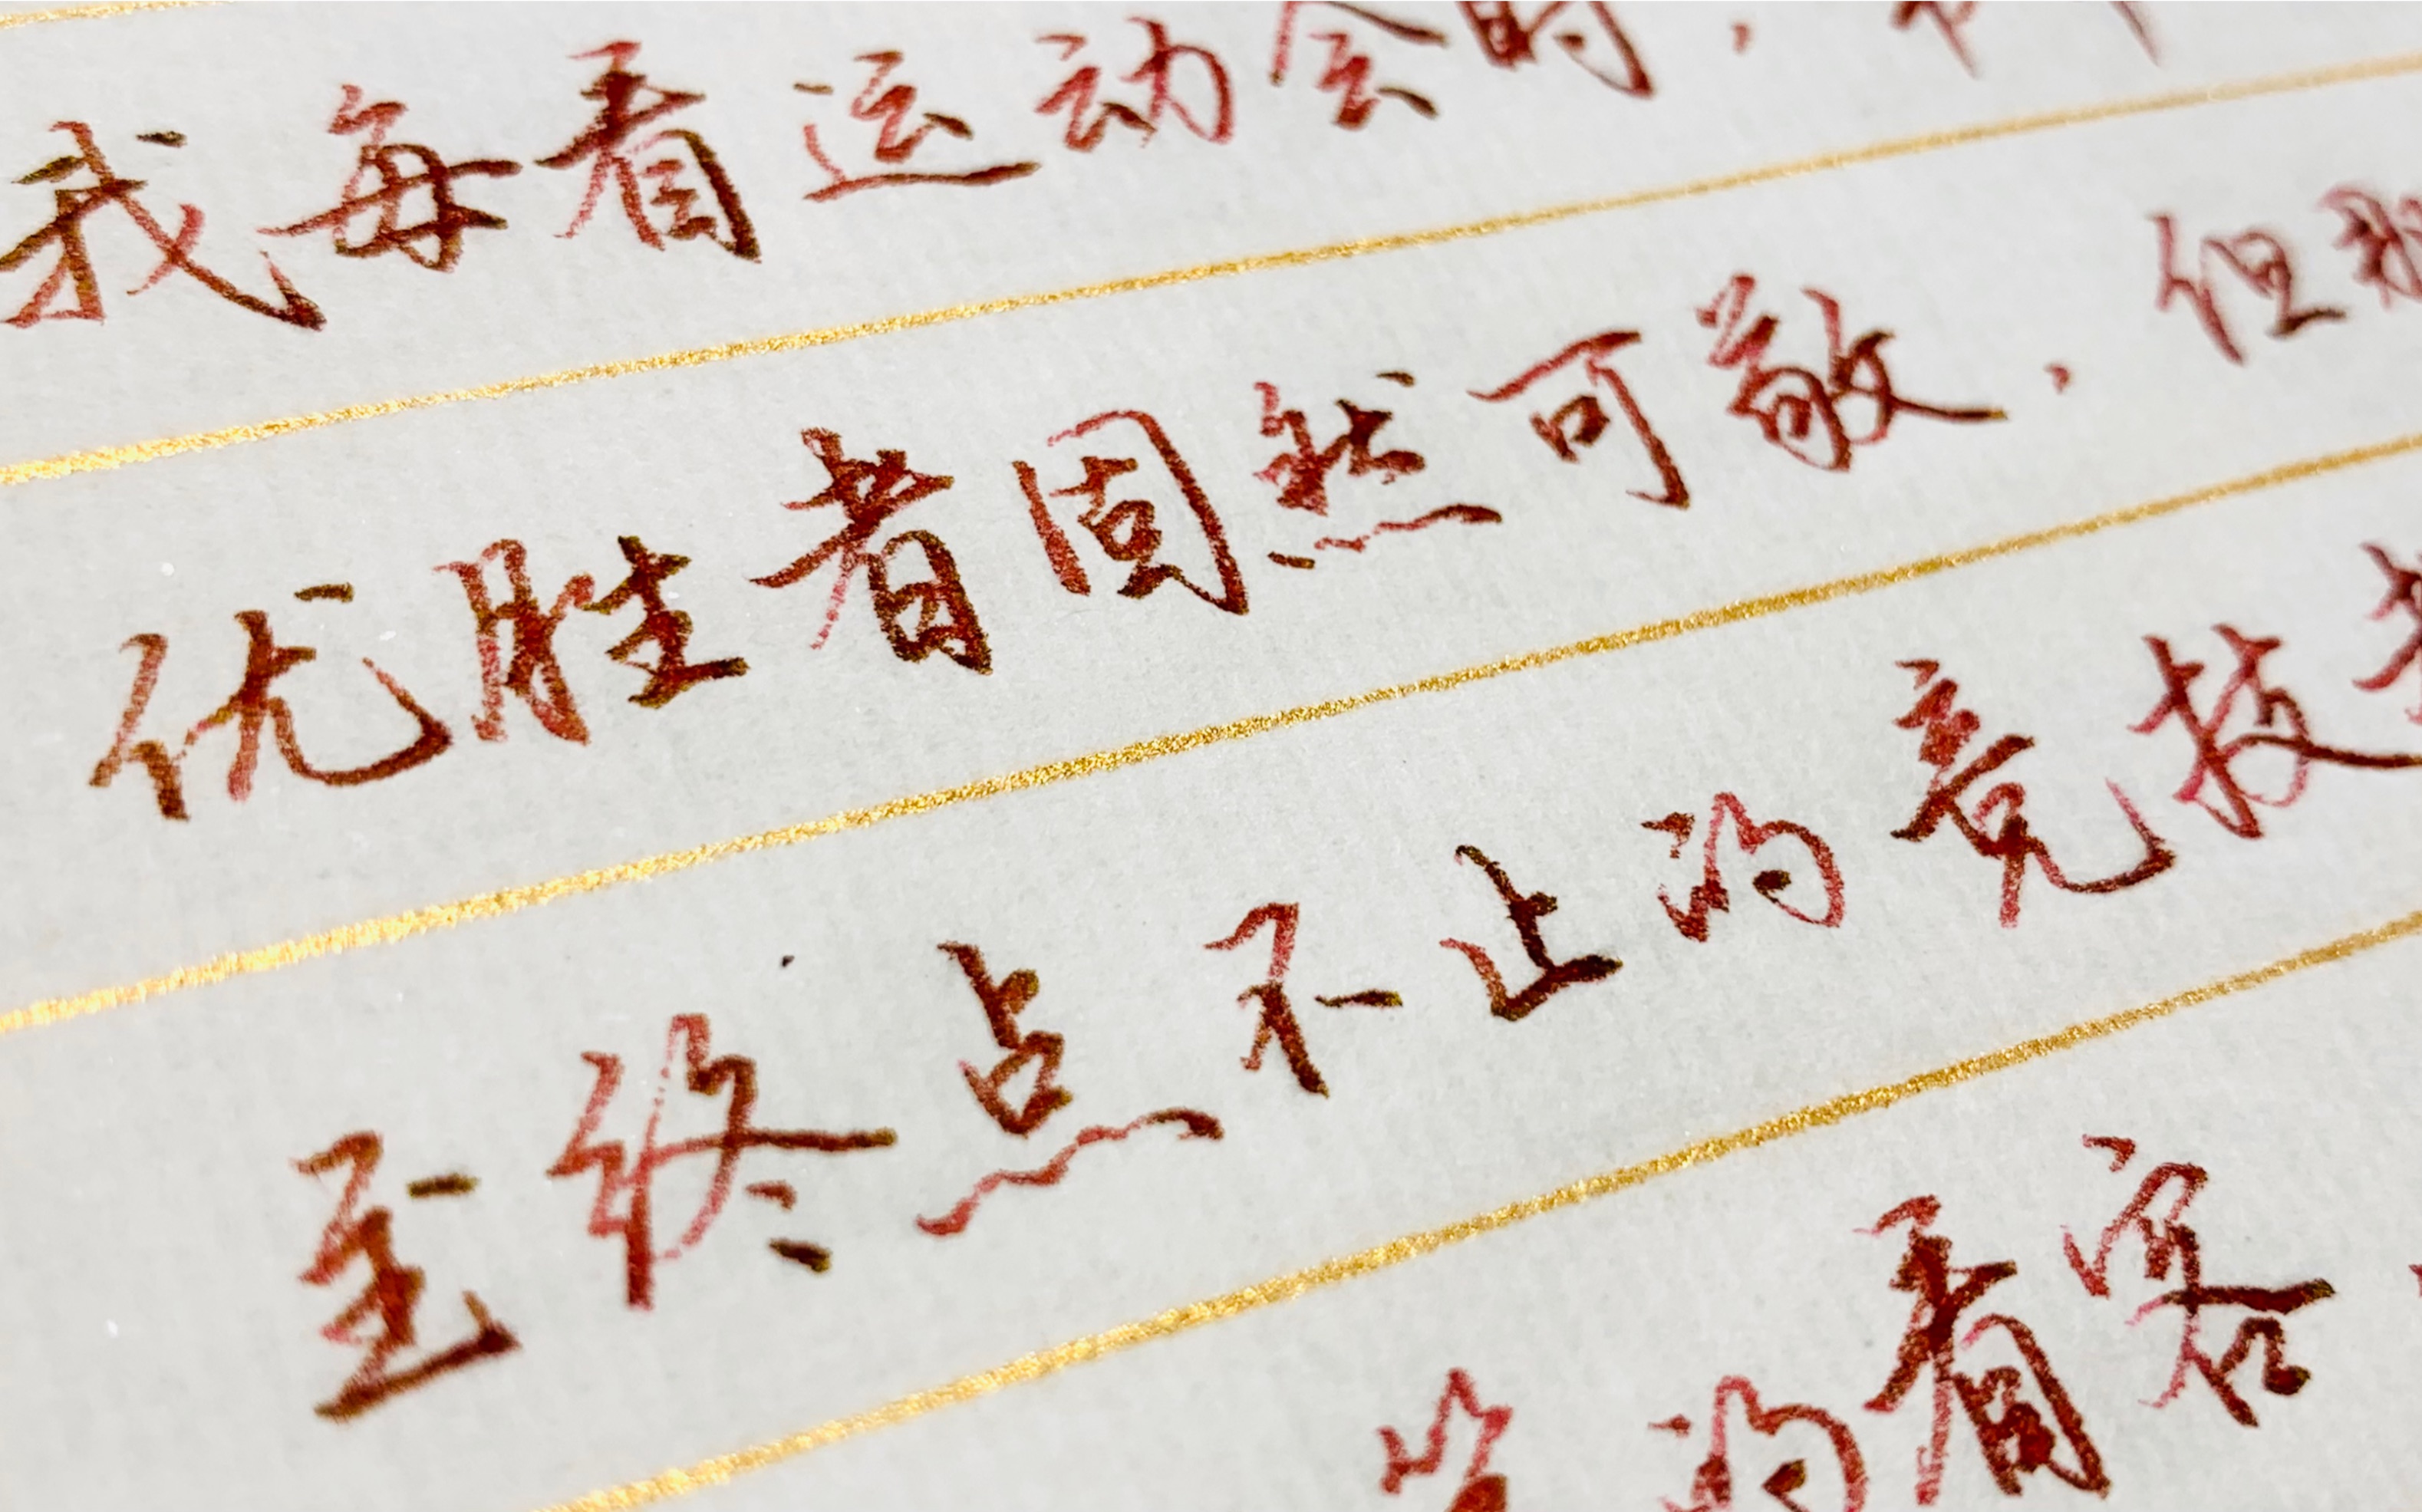 我每看运动会时，
优胜者固然可敬，但那
至终点不止的竞技者
笑的看客